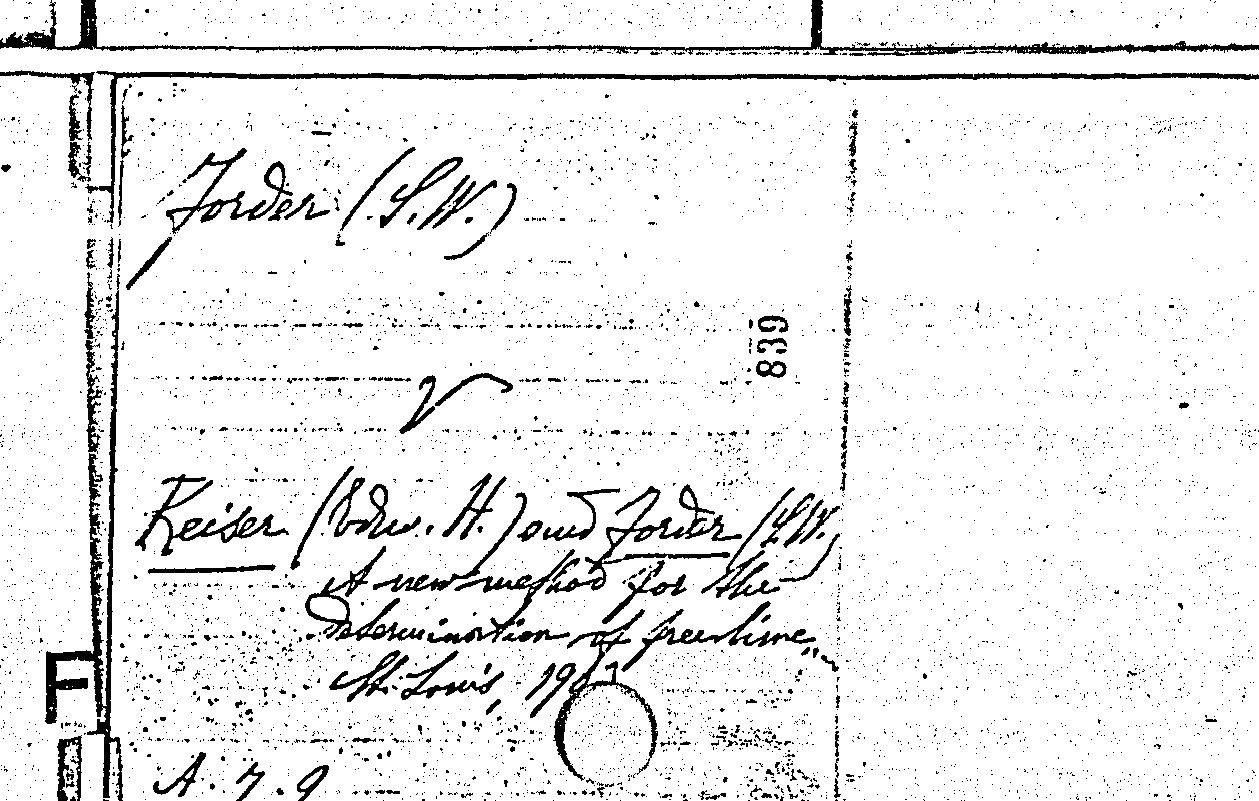 Forder (S.W.)
839
Keiser (Edw. H.) and Forder (S.W.)
A new method for the
determination of free lime,
St. Louis,
F
A. 7. 9